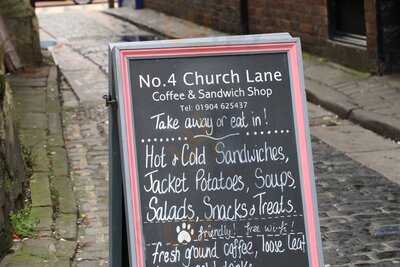 No.4 Church Lane
Coffee & Sandwich Shop
Tel: 01904 625437
Take away or eat in!
Hot & Cold Sandwiches,
Jacket Potatoes, Soups,
Salads, Snacks & Treats.
Dog friendly! free wifi!
Fresh ground coffee, loose leaf